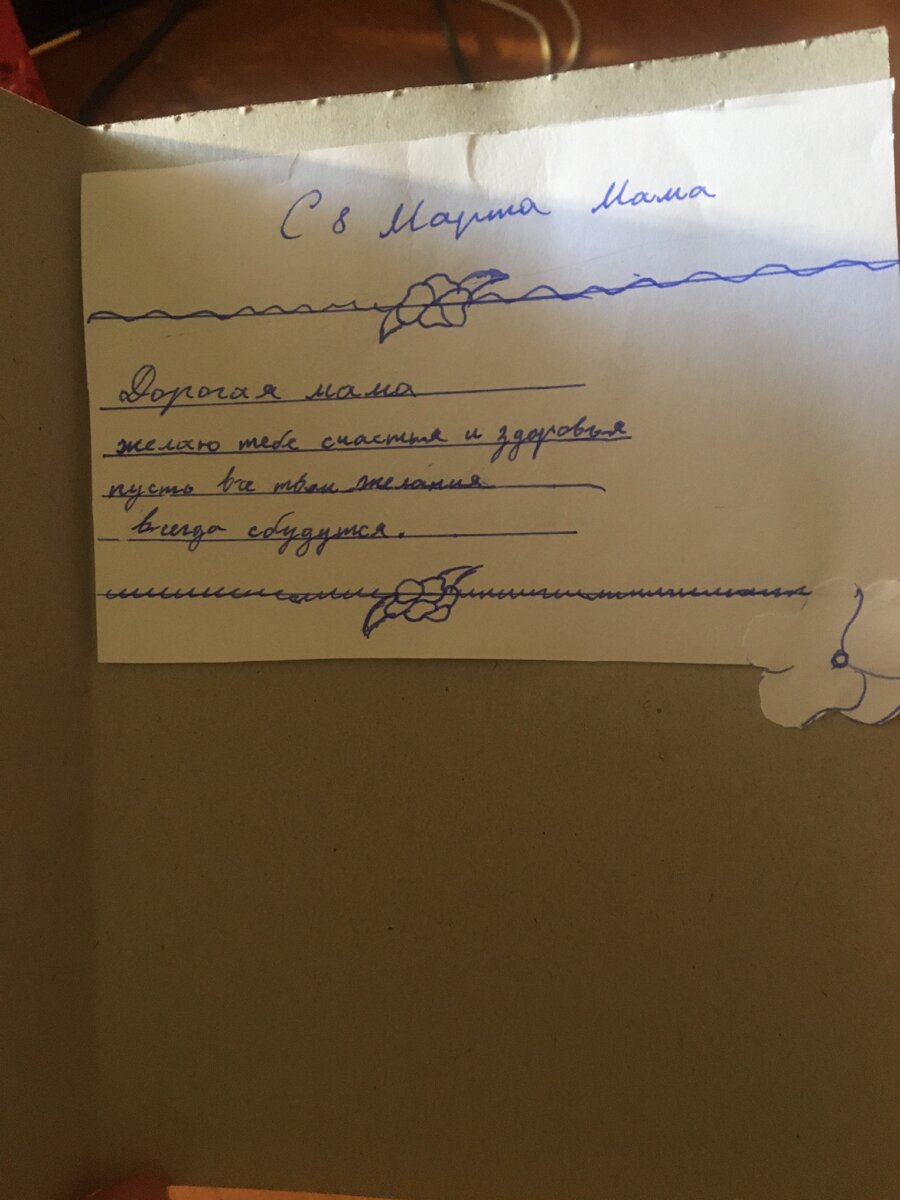 С 8 Марта Мама
Дорогая мама
желаю тебе счастья и здоровья
пусть все твои желания
всегда сбудутся.